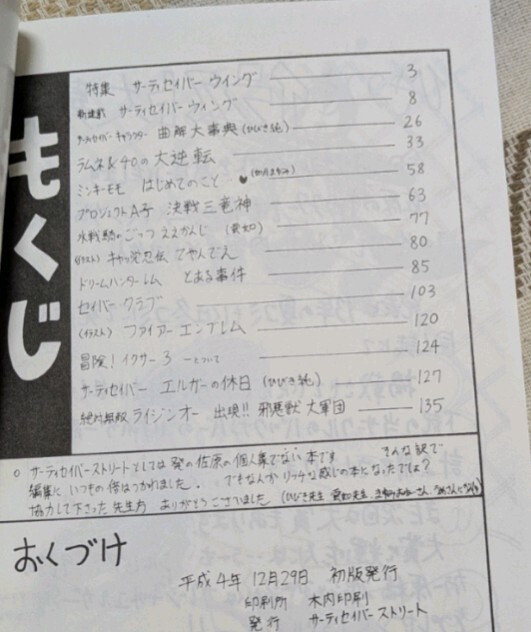 もくじ
特集 サーティセイバー ウイング 3
新連載 サーティセイバー ウィング 8
サーティセイバー キャラクター 曲解大事典 (ひびき純) 26
ラムネ&40の大逆転 33
ミンキーモモ はじめてのこと 58
プロジェクトA子 決戦三竜神 63
水戦騎のごっつ ええかんじ 77
(イラスト) キャッ党忍伝 てやんでえ 80
ドリームハンターレム とある事件 85
セイバークラブ 103
(イラスト) ファイアーエンブレム 120
冒険!イクサー3 ーについて 124
サーティセイバー エルガーの休日 (ひびき純) 127
絶対無敵 ライジンオー 出現!! 邪悪獣大軍団 135
○ サーティセイバーストリートとしては 発の佐原の個人集でない本です そんな訳で
編集に いつもの倍はつかれました. できなんか リッチな感じの本となったでしょ?
協力して下さった先生方 ありがとうございました (ひびき先生
おくづけ
平成4年12月29日 初版発行
印刷所 木内印刷
発行 サーティセイバーストリート